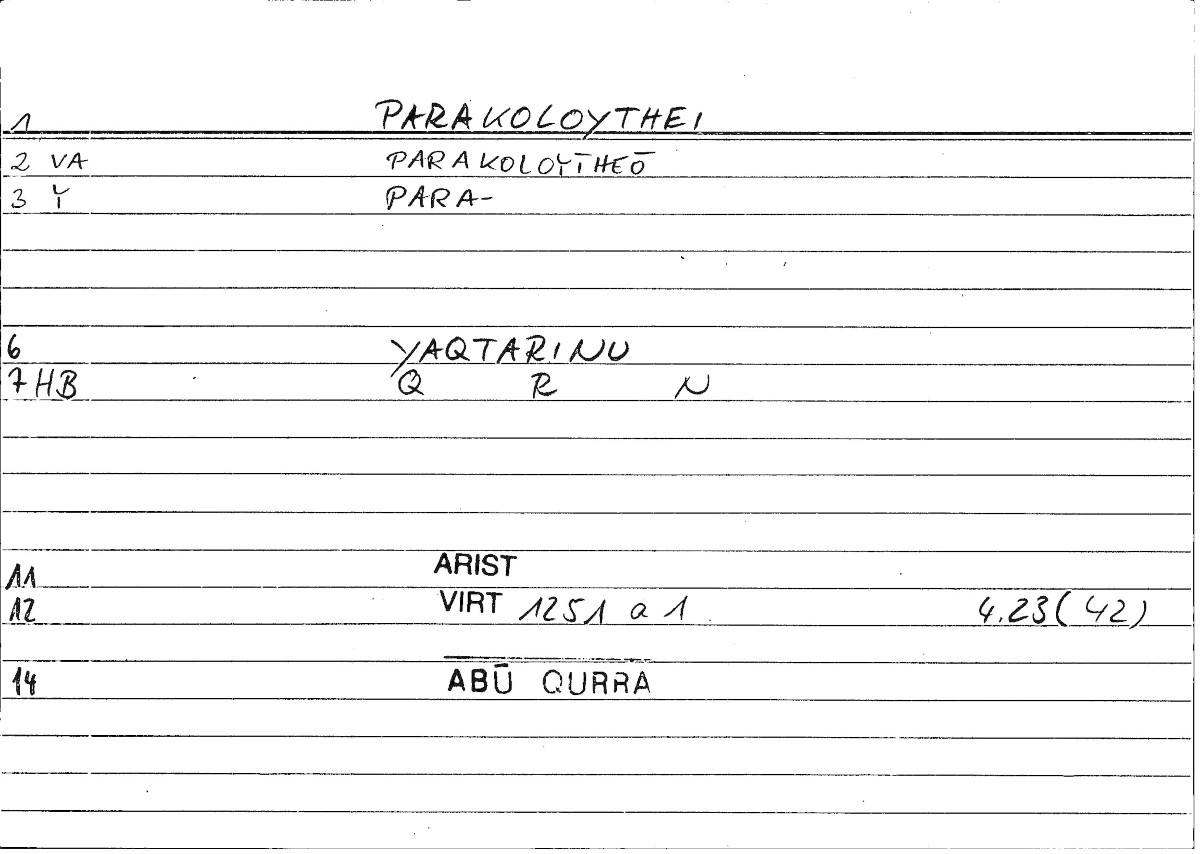 1 PARAKOLOYTHEI
2 VA PARAKOLOYTHEŌ
3 Y PARA-
6 YAQTARINU
7 HB Q R N
11 ARIST
12 VIRT 1251 a 1 4.23 (42)
14 ABŪ QURRA